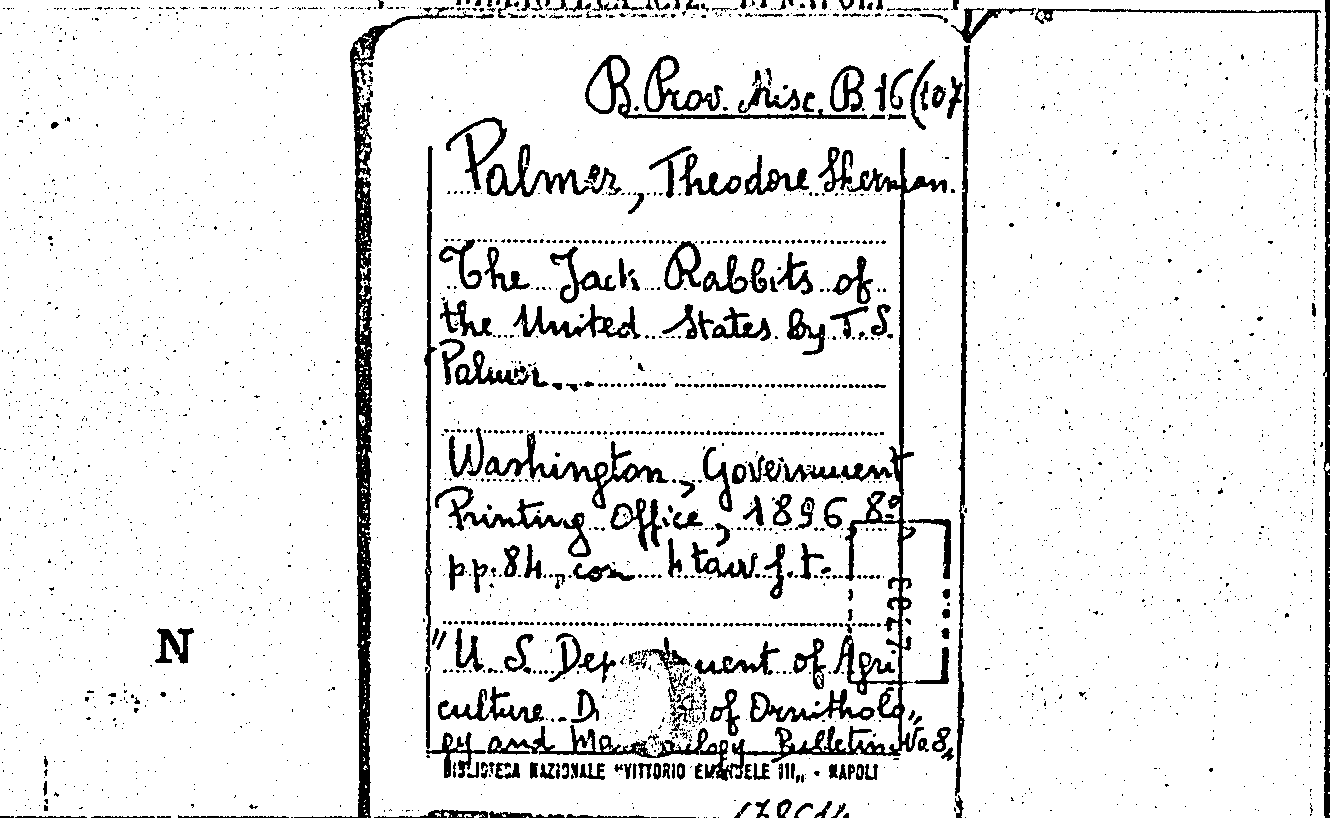 B. Prov. Misc. B. 16 (107
Palmer, Theodore Sherman.
The Jack Rabbits of
the United States by T.S.
Palmer...
Washington, Government
Printing Office, 1896 8º
pp. 84, con 4 tavv f.t.
"U. S. Dep ment of Agri
culture D of Ornitholo„
gy and Ma alogy Bulletin No 8„
BIBLIOTECA NAZIONALE "VITTORIO EMANUELE III„ - NAPOLI
N